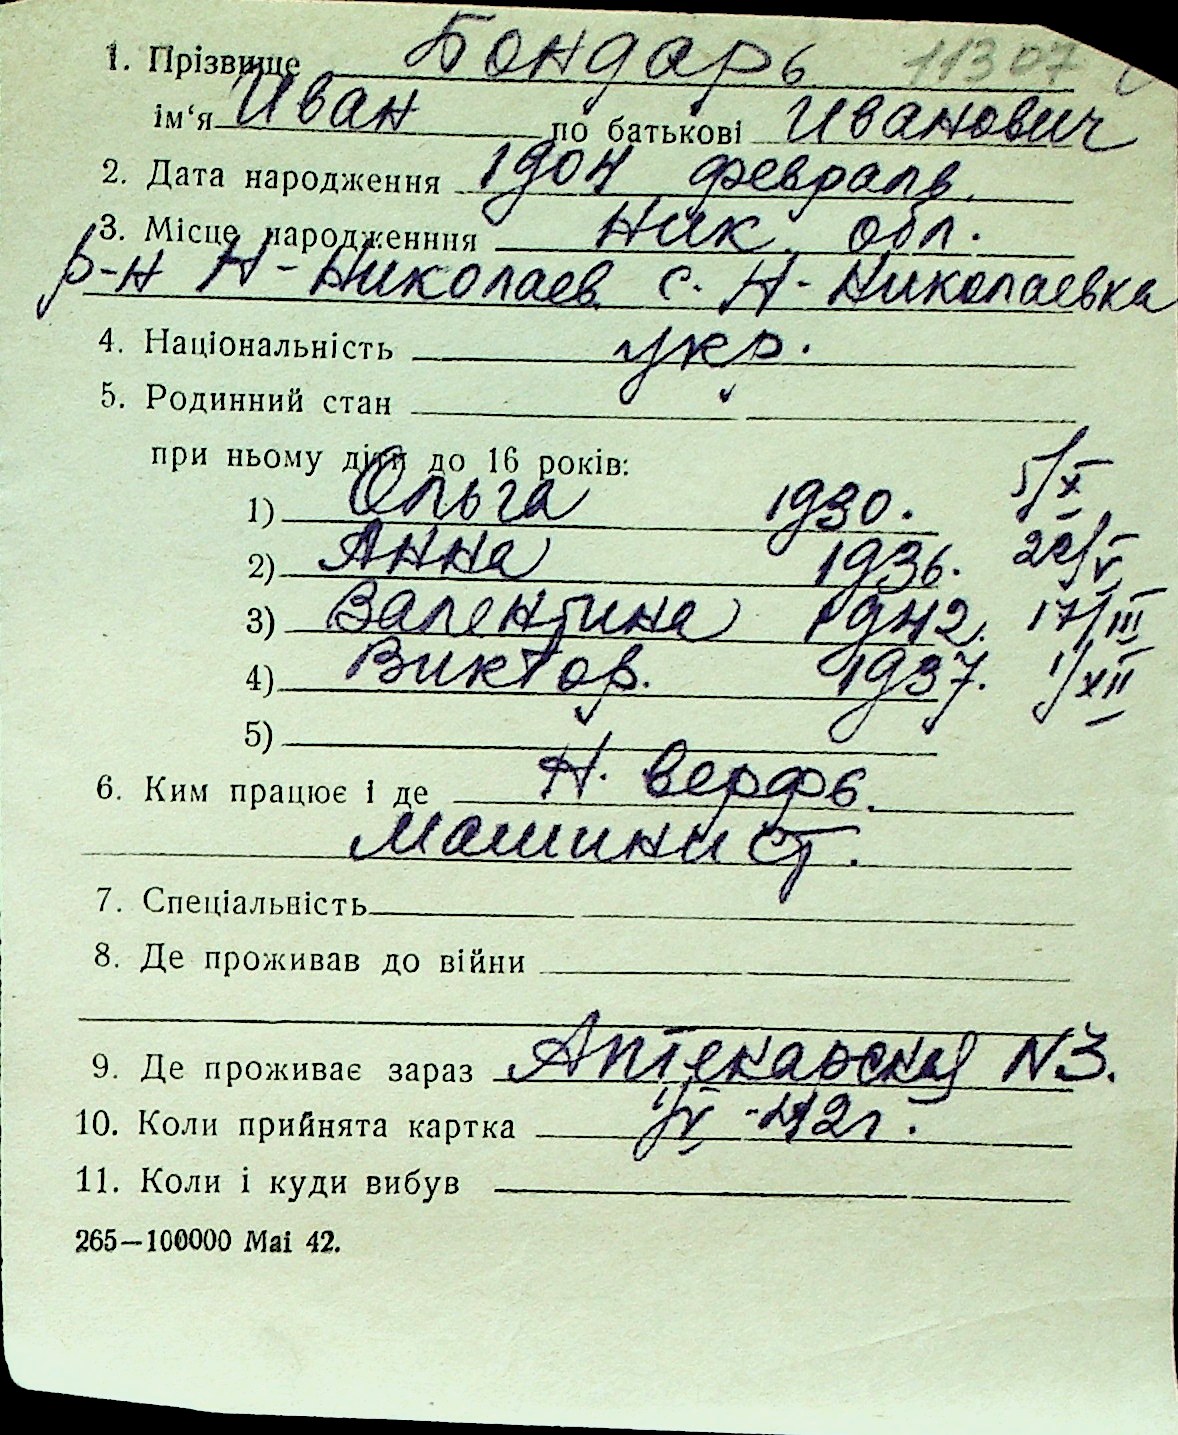 1. Прізвище Бондарь 11307
ім'я Иван по батькові Иванович
2. Дата народження 1904 февраль
3. Місце народженння Ник. обл.
р-н Н-Николаев с. Н-Николаевка
4. Національність укр.
5. Родинний стан
при ньому діти до 16 років:
1) Ольга 1930. 5/X
2) Анна 1936. /V
3) Валентина 1942. 17/III
4) Виктор. 1937. 1/XII
5)
6. Ким працює і де Н. верфь.
Машинист.
7. Спеціальність
8. Де проживав до війни
9. Де проживає зараз Аптекарская N3.
10. Коли прийнята картка 42г.
11. Коли і куди вибув
265—100000 Mai 42.